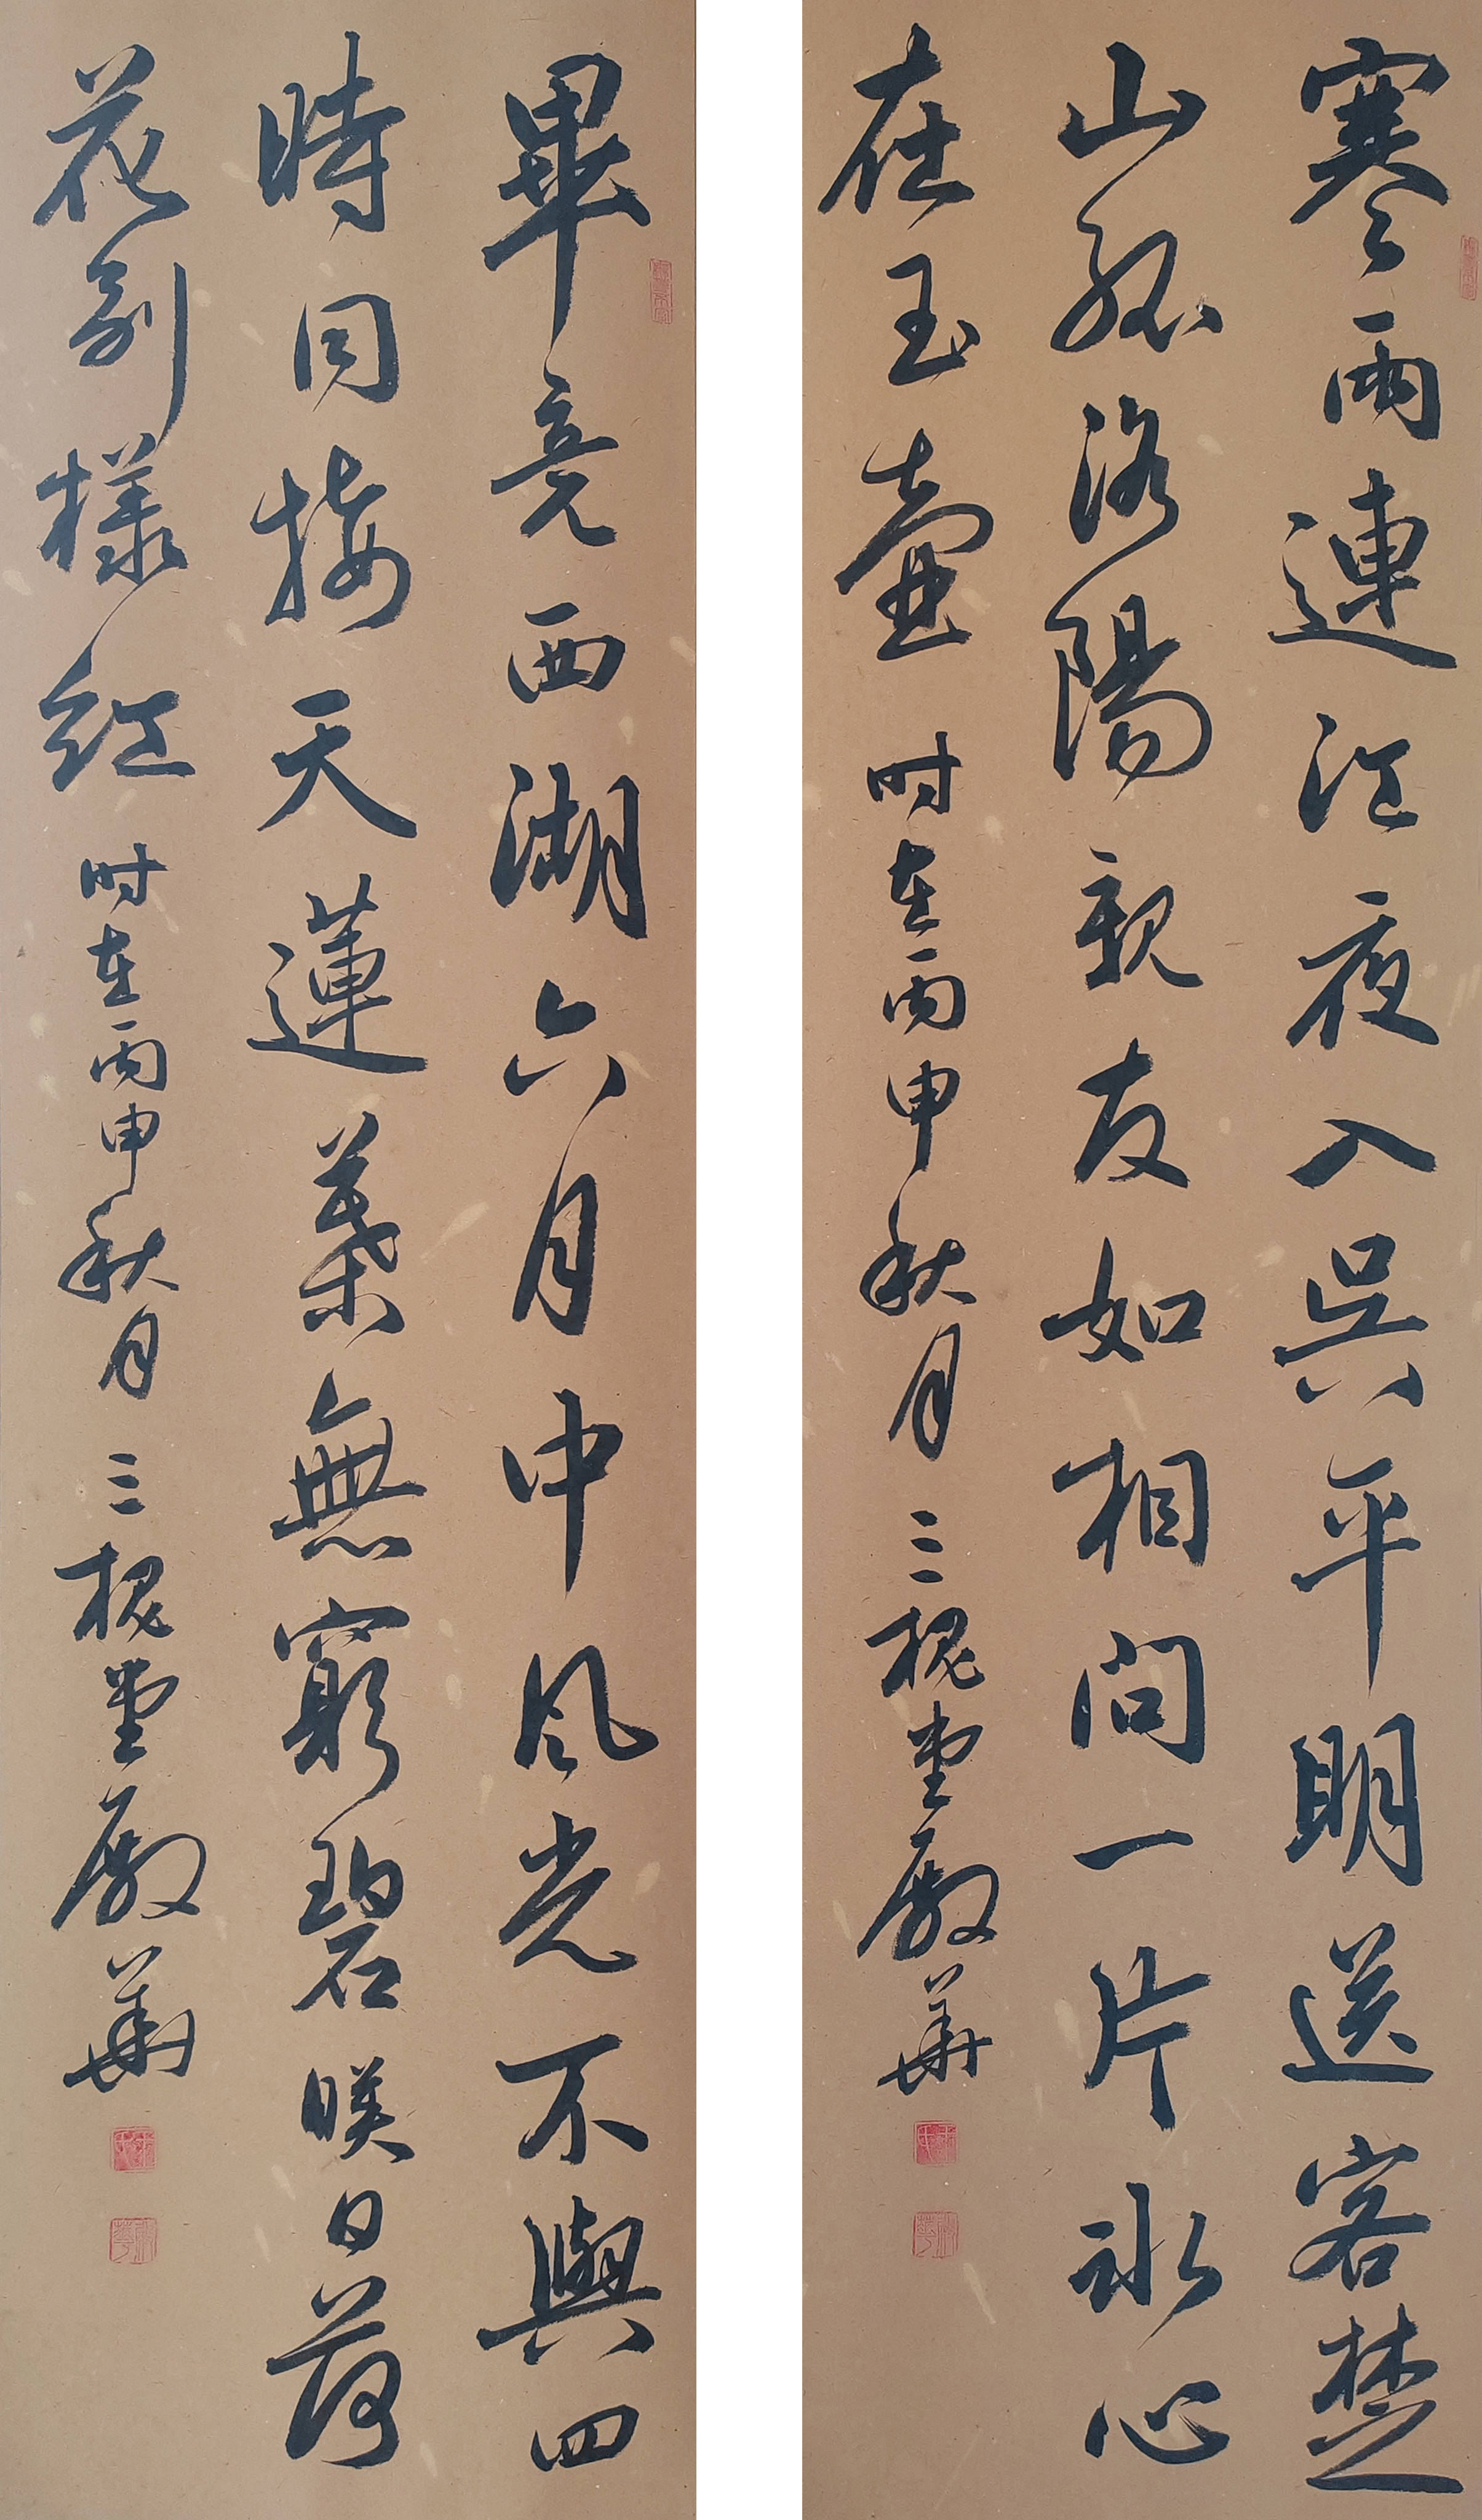 寒雨連江夜入吳平明送客楚
山孤洛陽親友如相問一片冰心
在玉壺 时在丙申秋月 三槐堂 華
畢竟西湖六月中风光不與四
時同接天蓮葉無窮碧暎日荷
花别樣紅 时在丙申秋月 三槐堂 華